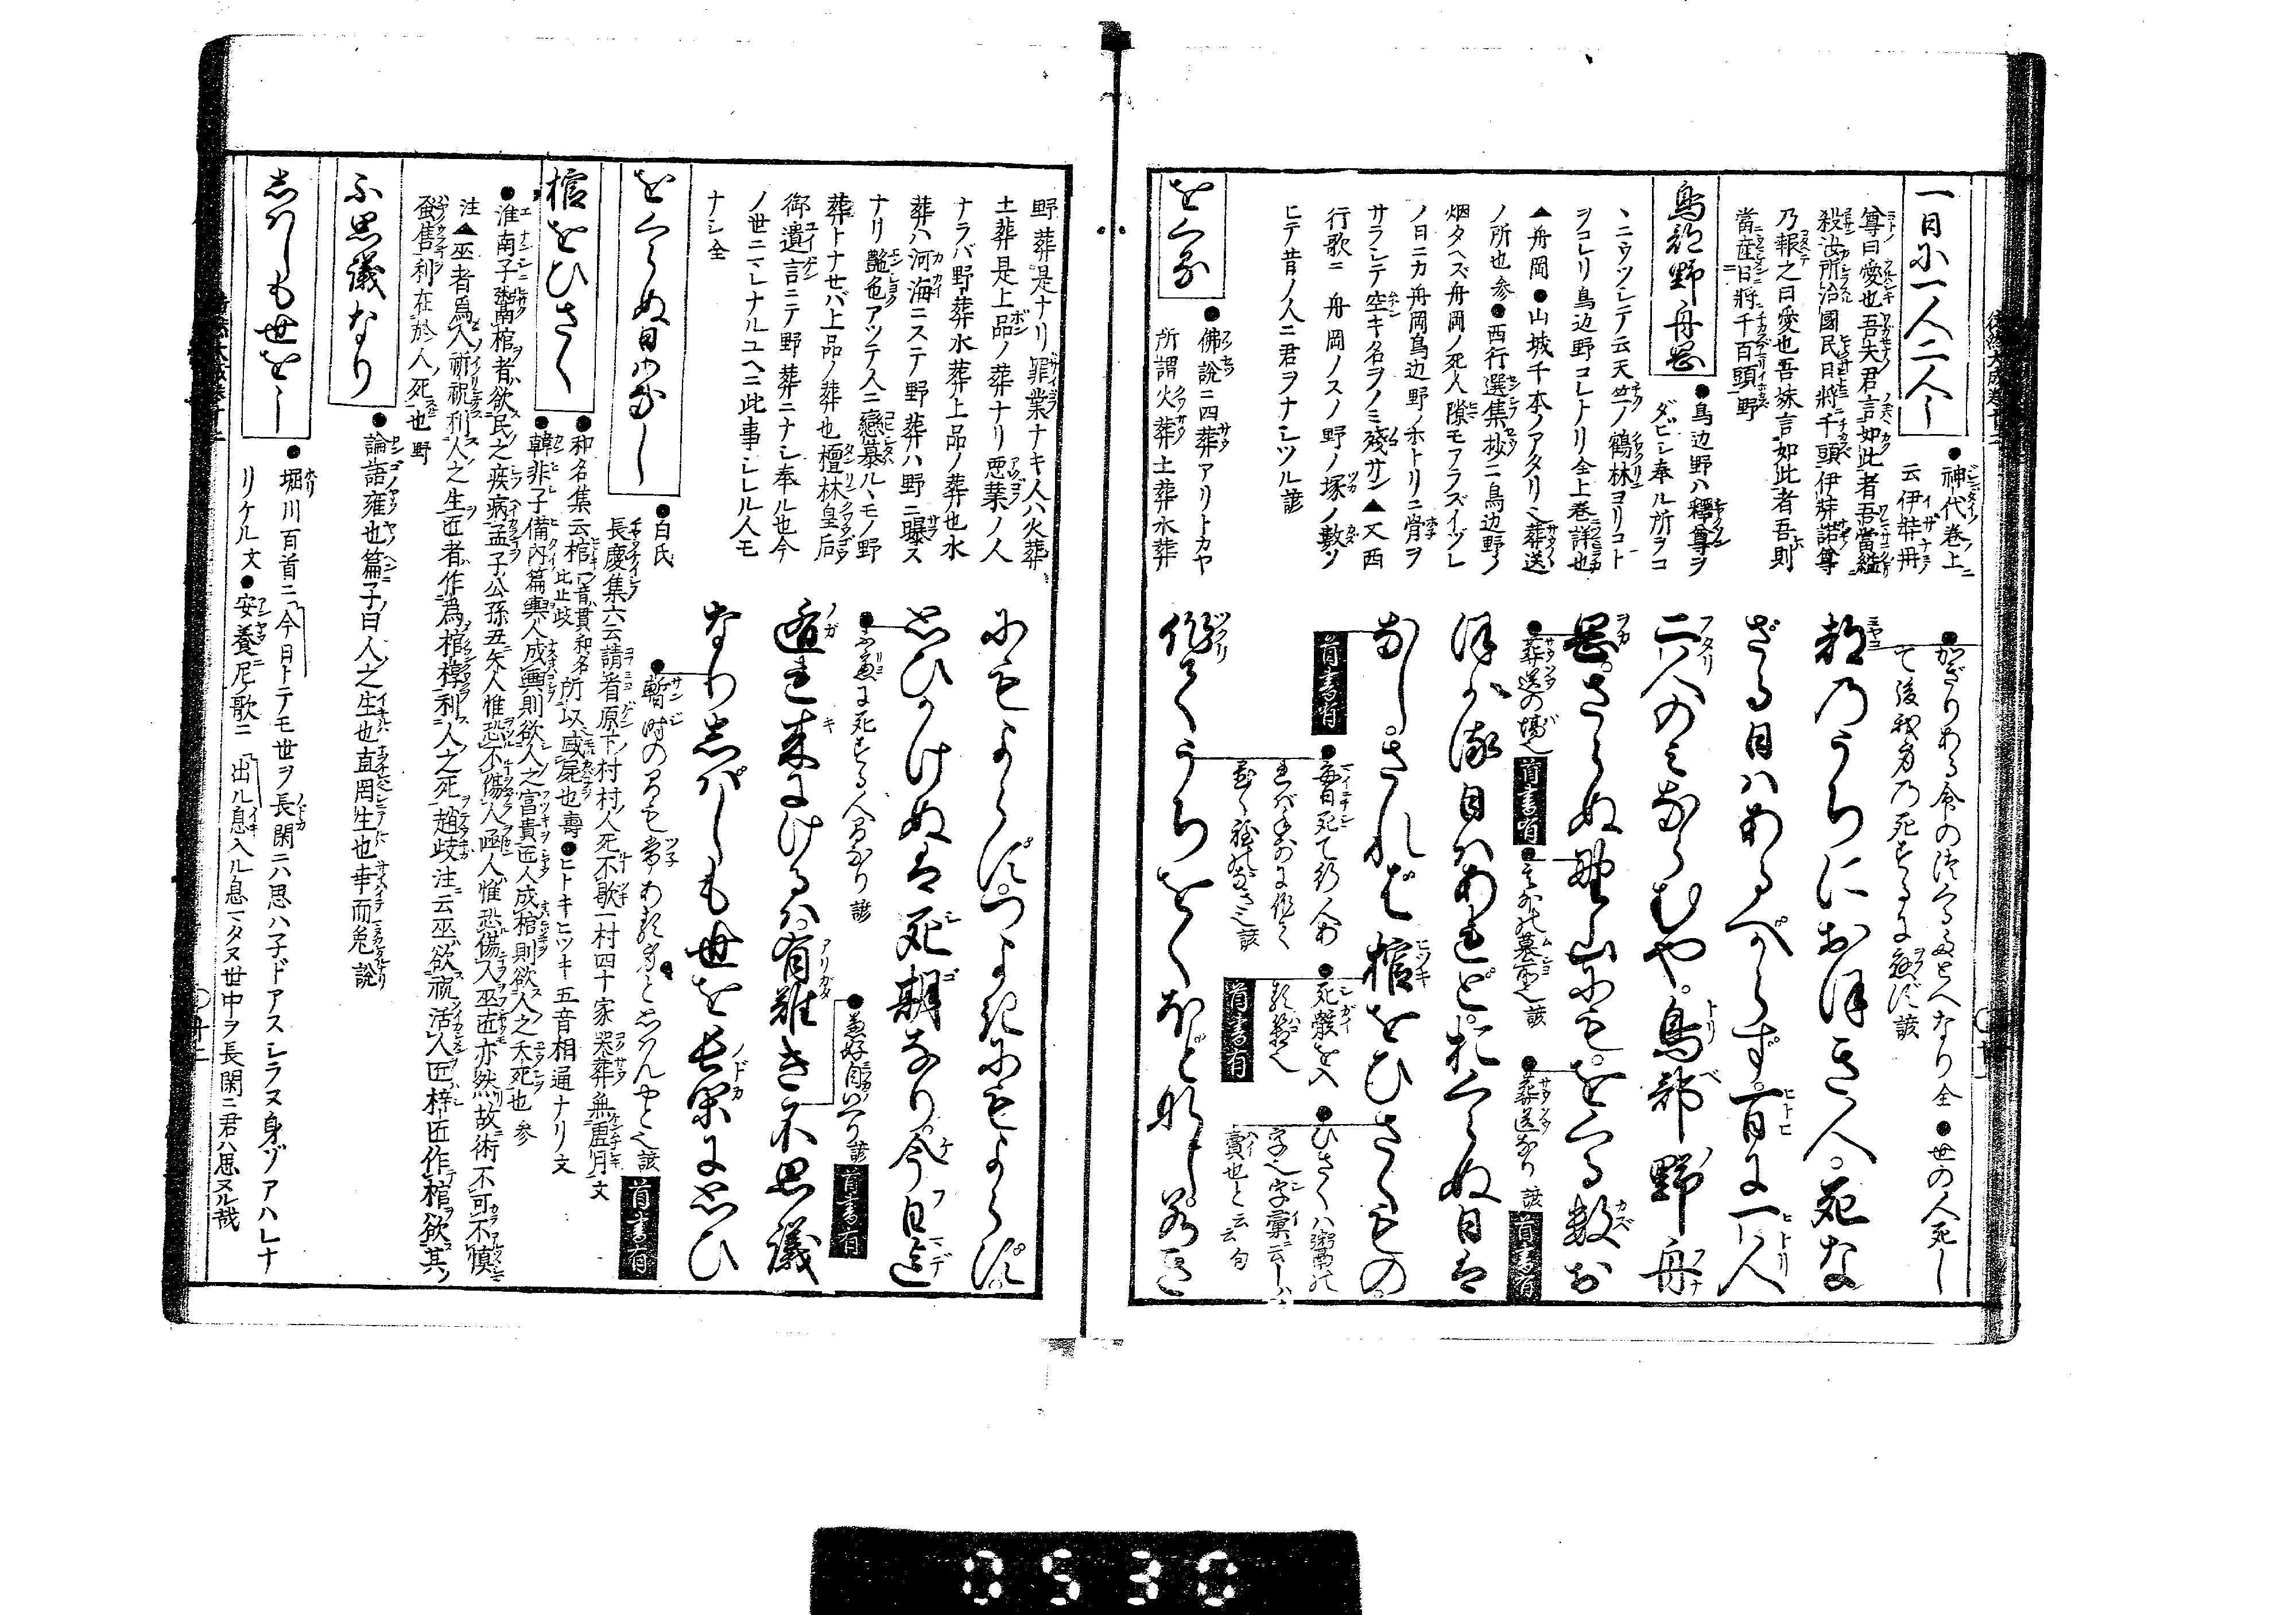 一日に一人二人〻
●神代巻上ニ
云伊弉冊
尊曰愛也吾夫君言如此者吾當縊
殺汝所治國民日將千頭伊弉諾尊
乃報之曰愛也吾妹言如此者吾則
當産日將千百頭野
鳥部野舟岡
●鳥边野ハ釋尊ヲ
ダビシ奉ル所ヲコ
ヽニウツシテ云天竺ノ鶴林ヨリコト
ヲコレリ鳥边野コレトリ全上巻詳也
▲舟岡●山城千本ノアタリ也葬送
ノ所也参●西行選集抄ニ鳥边野ノ
烟タヘズ舟岡ノ死人隙モアラズイヅレ
ノ日ニカ舟岡鳥边野ノホトリニ骨ヲ
サラシテ空キ名ヲノミ殘サン▲又西
行歌ニ舟岡ノスソノ野ノ塚ノ數ソ
ヒテ昔ノ人ニ君ヲナシツル諺
をくる
●佛説ニ四葬アリトカヤ
所謂火葬土葬水葬
●かぎりある命のほへるをいへるなり全●世の人死し
て後我身乃死する
都のうちにおほき人死な
ざる日はあるべからず一日に一人
二人のみならむや鳥部野舟
岡さらぬ野山にもをくる数お
●葬送の場也首書有
●葬送なり該首書有
ほかる日はあれどをくらぬ日は
なしされば棺をひさくもの
首書有
●毎日死て行人あ
●死骸を入
る器也
首書有
●ひさくハ粥鬻の
字也字彙云
賣也と云云句
作りてうちをくほどなし若き
野葬是ナリ罪業ナキ人ハ火葬
土葬是上品ノ葬ナリ悪業ノ人
ナラバ野葬水葬上品ノ葬也水
葬ハ河海ニステ野葬ハ野ニ曝ス
ナリ艶色アツテ人ニ戀慕ルヽモノ野
葬トナセバ上品ノ葬也檀林皇后
御遺言ニテ野葬ニナシ奉ル也今
ノ世ニマレナルユヘニ此事シレル人モ
ナシ全
をくらぬ日はなし
●白氏
長慶集六云請看原下村村人死不歇一村四十家哭葬無虚月文
棺をひさく
●和名集云棺音貫和名比止岐所以盛屍也壽●ヒトキヒツキ五音相通ナリ文
●韓非子備内篇輿人成輿則欲人之富貴匠人成棺則欲人之夭死也参
●淮南子鬻棺者欲民之疾病孟子公孫丑矢人惟恐不傷人函人惟恐傷人巫匠亦然故術不可不慎
注▲巫者爲人祈祝利人之生匠者作爲棺椁利人之死趙歧注云巫欲祝活人匠梓匠作棺欲其
蚤售利在於人死也野
不思儀なり
●論語雍也篇子曰人之生也直罔生也幸而免説
しばしも世を〻
●堀川百首ニ今日トテモ世ヲ長閑ニハ思ハ子ドアスシラヌ身ゾアハレナ
リケル文●安養尼ノ歌ニ出ル息入ル息マタヌ世中ヲ長閑ニ君ハ思ヌル哉
にもよらずつよきにもよらず
思ひかけぬは死期なり今日迄
●不慮に死する人多なり諺
●兼好自いへり諺首書有
遁れ来にけるは有難き不思議
なりしばしも世を長閑に思ひ
●暫時のまも常あるものと思はんやと也該首書有